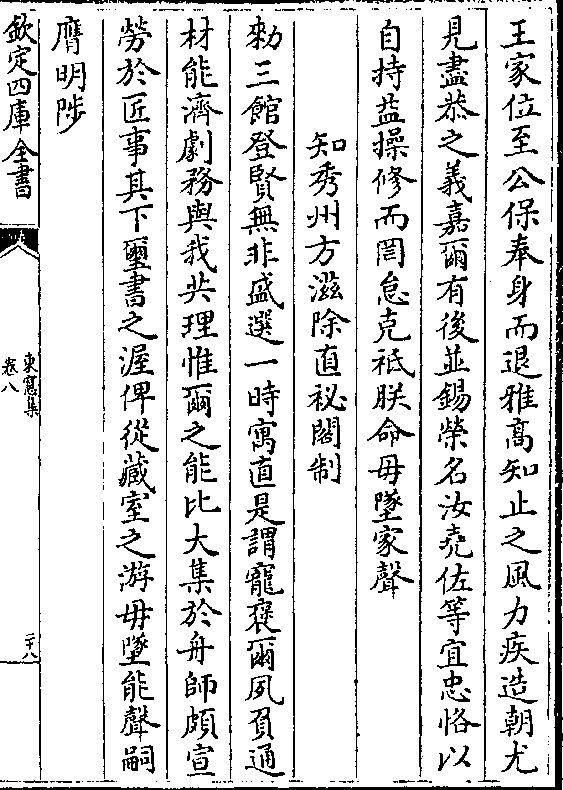 王家位至公保奉身而退雅高知止之風力疾造朝尤
見盡恭之義嘉爾有後並錫榮名汝堯佐等宜忠恪以
自持益操修而罔怠克祗朕命毋墜家聲
知秀州方滋除直秘閣制
勑三館登賢無非盛選一時寓直是謂寵襃爾夙負通
材能濟劇務與我共理惟爾之能比大集於舟師頗宣
勞於匠事其下璽書之渥俾從藏室之游毋墜能聲嗣
膺明陟
欽定四庫全書
東窻集
卷八
二十八